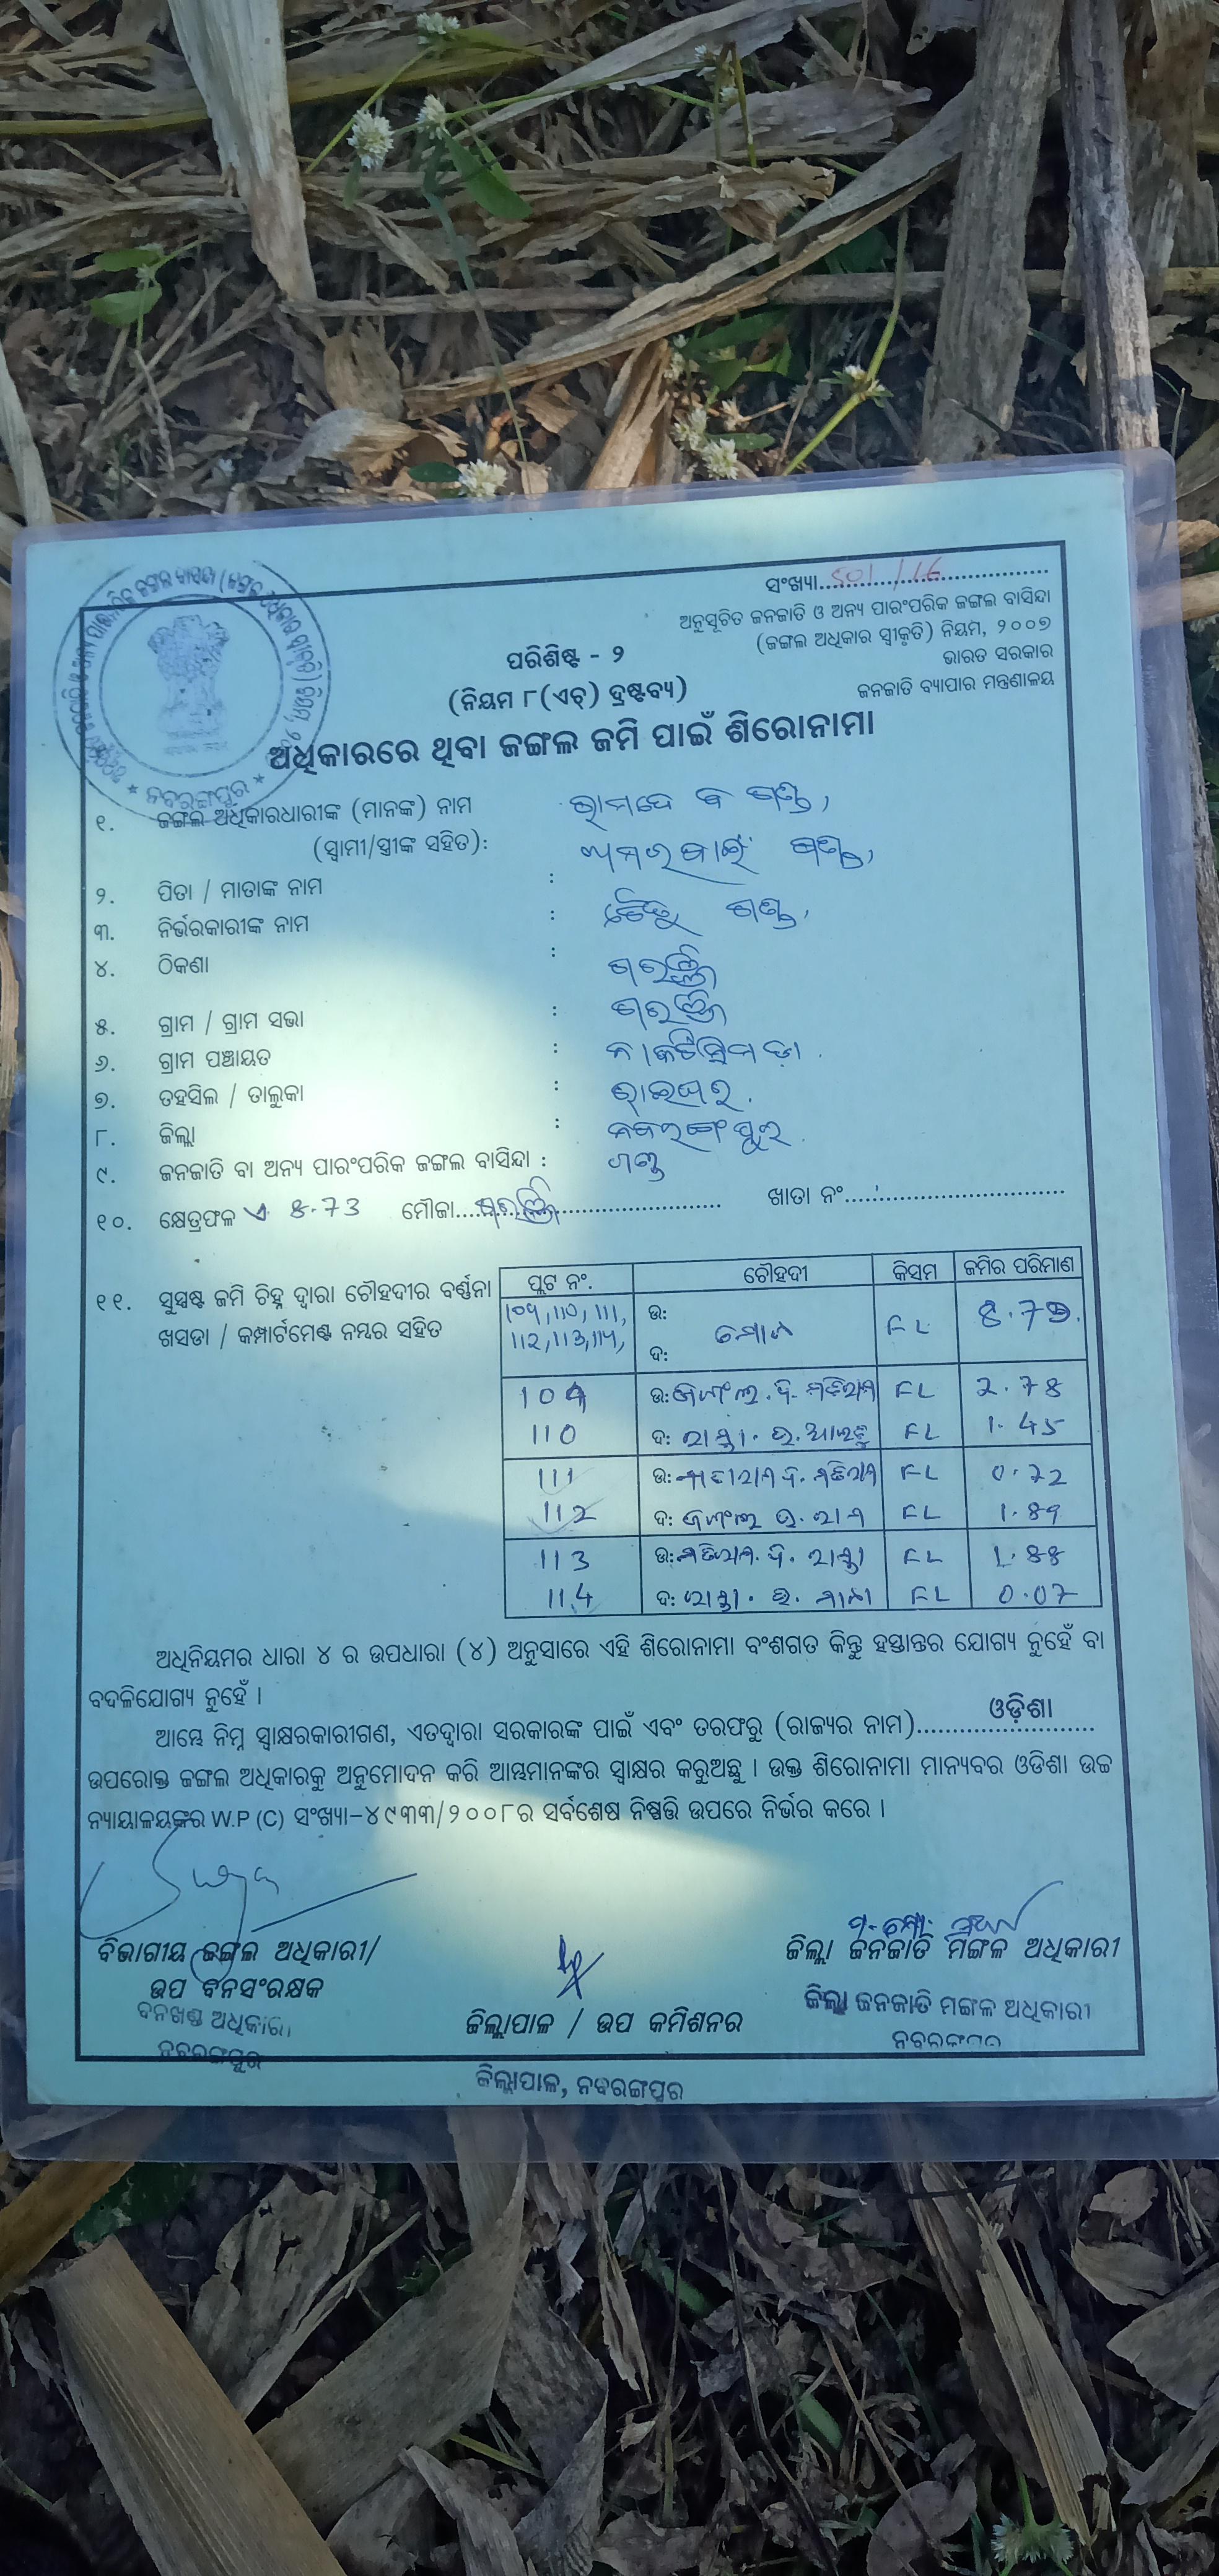 ସଂଖ୍ୟା....501/16....
ଅନୁସୂଚିତ ଜନଜାତି ଓ ଅନ୍ୟ ପାରଂପରିକ ଜଙ୍ଗଲ ବାସିନ୍ଦା
(ଜଙ୍ଗଲ ଅଧିକାର ସ୍ୱୀକୃତି) ନିୟମ, ୨୦୦୭
ଭାରତ ସରକାର
ଜନଜାତି ବ୍ୟାପାର ମନ୍ତ୍ରଣାଳୟ
ପରିଶିଷ୍ଟ - ୨
(ନିୟମ ୮(ଏଚ୍) ଦ୍ରଷ୍ଟବ୍ୟ)
ଅଧିକାରରେ ଥିବା ଜଙ୍ଗଲ ଜମି ପାଇଁ ଶିରୋନାମା
ନବରଙ୍ଗପୁର
୧. ଜଙ୍ଗଲ ଅଧିକାରଧାରୀଙ୍କ (ମାନଙ୍କ) ନାମ ରାମଦେବ ଗଣ୍ଡ,
(ସ୍ୱାମୀ/ସ୍ତ୍ରୀଙ୍କ ସହିତ):
୨. ପିତା / ମାତାଙ୍କ ନାମ :
୩. ନିର୍ଭରକାରୀଙ୍କ ନାମ : ଗଣ୍ଡ,
୪. ଠିକଣା :
୫. ଗ୍ରାମ / ଗ୍ରାମ ସଭା :
୬. ଗ୍ରାମ ପଞ୍ଚାୟତ :
୭. ତହସିଲ / ତାଲୁକା : ରାଇଘର.
୮. ଜିଲ୍ଲା : ନବରଙ୍ଗପୁର.
୯. ଜନଜାତି ବା ଅନ୍ୟ ପାରଂପରିକ ଜଙ୍ଗଲ ବାସିନ୍ଦା : ଗଣ୍ଡ
୧୦. କ୍ଷେତ୍ରଫଳ ଏ 8.73 ମୌଜା.......... ଖାତା ନଂ..........
୧୧. ସୁସ୍ପଷ୍ଟ ଜମି ଚିହ୍ନ ଦ୍ୱାରା ଚୌହଦୀର ବର୍ଣ୍ଣନା
ଖସଡା / କମ୍ପାର୍ଟମେଣ୍ଟ ନମ୍ବର ସହିତ
ପ୍ଲଟ ନଂ. ଚୌହଦୀ କିସମ ଜମିର ପରିମାଣ
109, 110, 111, ଉ:
112, 113, 114, ଦ: FL 8.79.
109 ଉ: FL 2.78
110 ଦ: ରାସ୍ତା. FL 1.45
111 ଉ: FL 0.72
112 ଦ: FL 1.89
113 ଉ: ରାସ୍ତା FL 1.88
114 ଦ: ରାସ୍ତା. FL 0.07
ଅଧିନିୟମର ଧାରା ୪ ର ଉପଧାରା (୪) ଅନୁସାରେ ଏହି ଶିରୋନାମା ବଂଶଗତ କିନ୍ତୁ ହସ୍ତାନ୍ତର ଯୋଗ୍ୟ ନୁହେଁ ବା
ବଦଳିଯୋଗ୍ୟ ନୁହେଁ ।
ଆମ୍ଭେ ନିମ୍ନ ସ୍ୱାକ୍ଷରକାରୀଗଣ, ଏତଦ୍ୱାରା ସରକାରଙ୍କ ପାଇଁ ଏବଂ ତରଫରୁ (ରାଜ୍ୟର ନାମ).....ଓଡ଼ିଶା.....
ଉପରୋକ୍ତ ଜଙ୍ଗଲ ଅଧିକାରକୁ ଅନୁମୋଦନ କରି ଆମ୍ଭମାନଙ୍କର ସ୍ୱାକ୍ଷର କରୁଅଛୁ । ଉକ୍ତ ଶିରୋନାମା ମାନ୍ୟବର ଓଡିଶା ଉଚ୍ଚ
ନ୍ୟାୟାଳୟଙ୍କର W.P (C) ସଂଖ୍ୟା-୪୯୩୩/୨୦୦୮ର ସର୍ବଶେଷ ନିଷ୍ପତ୍ତି ଉପରେ ନିର୍ଭର କରେ ।
ବିଭାଗୀୟ ଜଙ୍ଗଲ ଅଧିକାରୀ/
ଉପ ବନସଂରକ୍ଷକ
ବନଖଣ୍ଡ ଅଧିକାରୀ
ନବରଙ୍ଗପୁର
ଜିଲ୍ଲାପାଳ / ଉପ କମିଶନର
ଜିଲ୍ଲାପାଳ, ନବରଙ୍ଗପୁର
ଜିଲ୍ଲା ଜନଜାତି ମଙ୍ଗଳ ଅଧିକାରୀ
ଜିଲ୍ଲା ଜନଜାତି ମଙ୍ଗଳ ଅଧିକାରୀ
ନବରଙ୍ଗପୁର